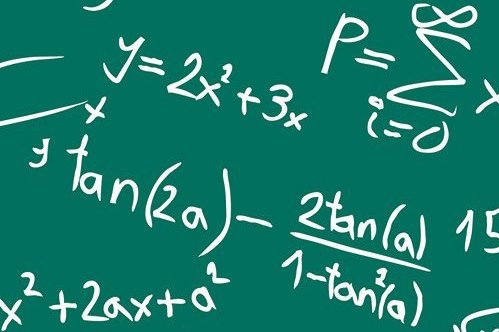 y=2x²+3x
P=∑ i=0 ∞ x
x
y
tan(2a)− 2tan(a)/1−tan²(a)
15
x²+2ax+a²